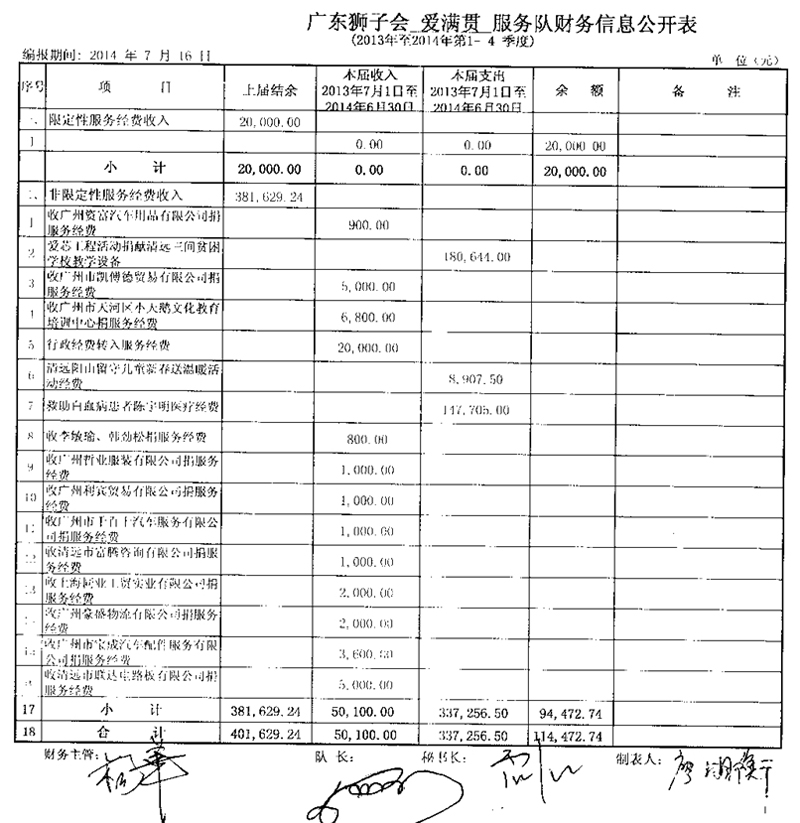 广东狮子会 爱满贯 服务队财务信息公开表
(2013年至2014年第1- 4 季度)
编报期间: 2014 年 7 月 16 日 单 位（元）
序号 项 目 上届结余 本届收入 2013年7月1日至2014年6月30日 本届支出 2013年7月1日至2014年6月30日 余 额 备 注
一、 限定性服务经费收入 20,000.00
1 0.00 0.00 20,000.00
小 计 20,000.00 0.00 0.00 20,000.00
二、 非限定性服务经费收入 381,629.24
1 收广州资富汽车用品有限公司捐服务经费 900.00
2 爱芯工程活动捐献清远三间贫困学校教学设备 180,644.00
3 收广州市凯傅德贸易有限公司捐服务经费 5,000.00
4 收广州市天河区小天鹅文化教育培训中心捐服务经费 6,800.00
5 行政经费转入服务经费 20,000.00
6 清远阳山留守儿童新春送温暖活动经费 8,907.50
7 救助白血病患者陈宇明医疗经费 147,705.00
8 收李敏瑜、韩劲松捐服务经费 800.00
9 收广州哲业服装有限公司捐服务经费 1,000.00
10 收广州利宾贸易有限公司捐服务经费 1,000.00
11 收广州市千百十汽车服务有限公司捐服务经费 1,000.00
12 收清远市富腾咨询有限公司捐服务经费 1,000.00
13 收上海同业工贸实业有限公司捐服务经费 2,000.00
收广州豪盛物流有限公司捐服务经费 2,000.00
15 收广州市宝成汽车配件服务有限公司捐服务经费 3,600.00
收清远市联达电路板有限公司捐服务经费 5,000.00
17 小 计 381,629.24 50,100.00 337,256.50 94,472.74
18 合 计 401,629.24 50,100.00 337,256.50 114,472.74
财务主管: 队 长: 秘书长: 制表人: